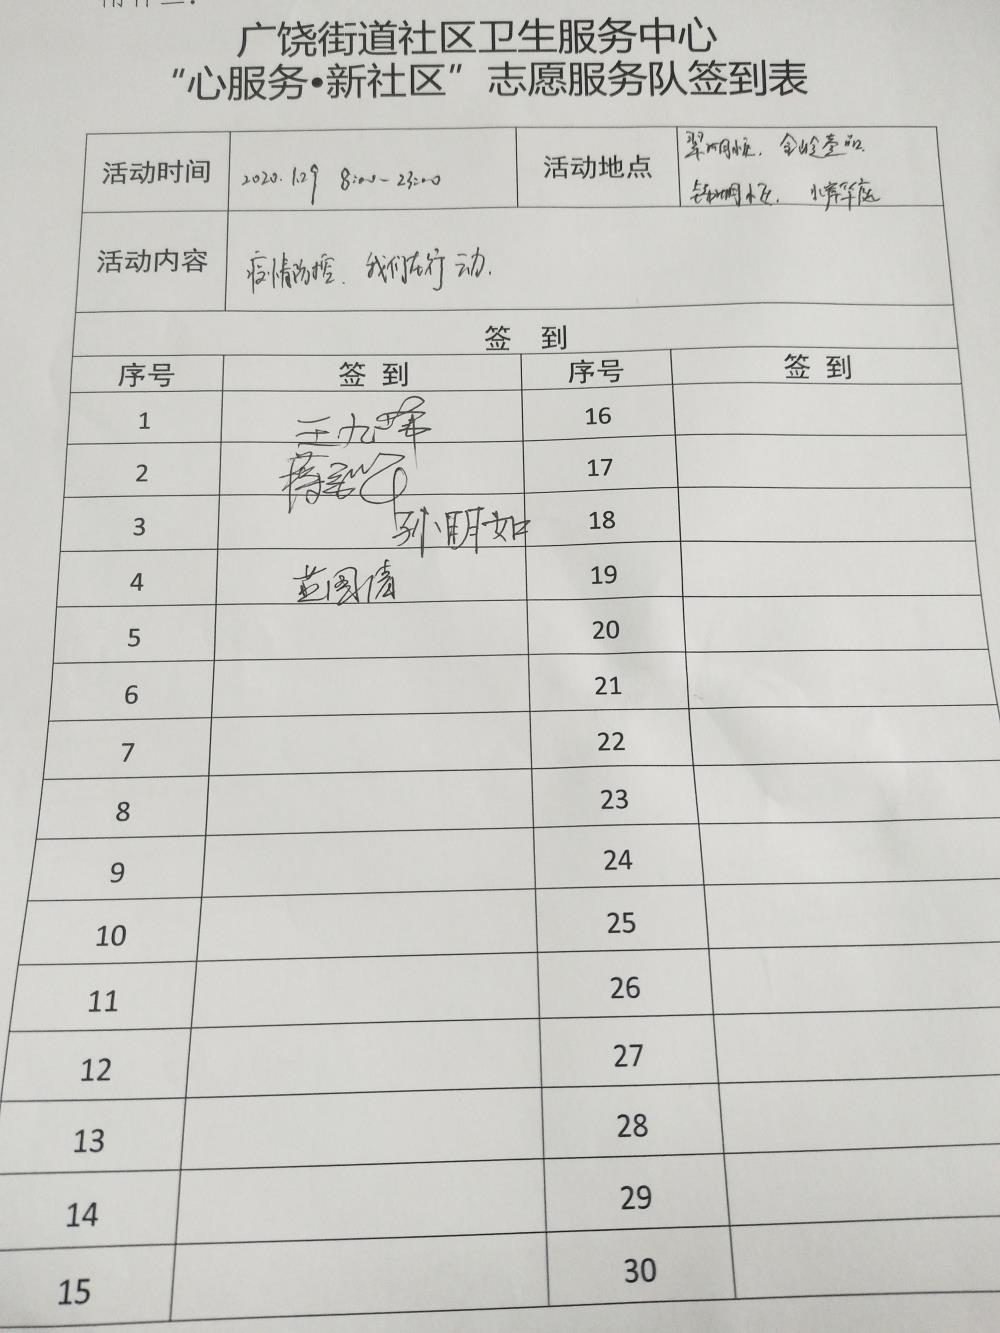 广饶街道社区卫生服务中心
“心服务•新社区”志愿服务队签到表
活动时间 2020.1.29 8:00-23:00 活动地点
活动内容 疫情防控、我们在行动.
签 到
序号 签到 序号 签到
1 王九萍 16
2 17
3 孙明如 18
4 19
5 20
6 21
7 22
8 23
9 24
10 25
11 26
12 27
13 28
14 29
15 30